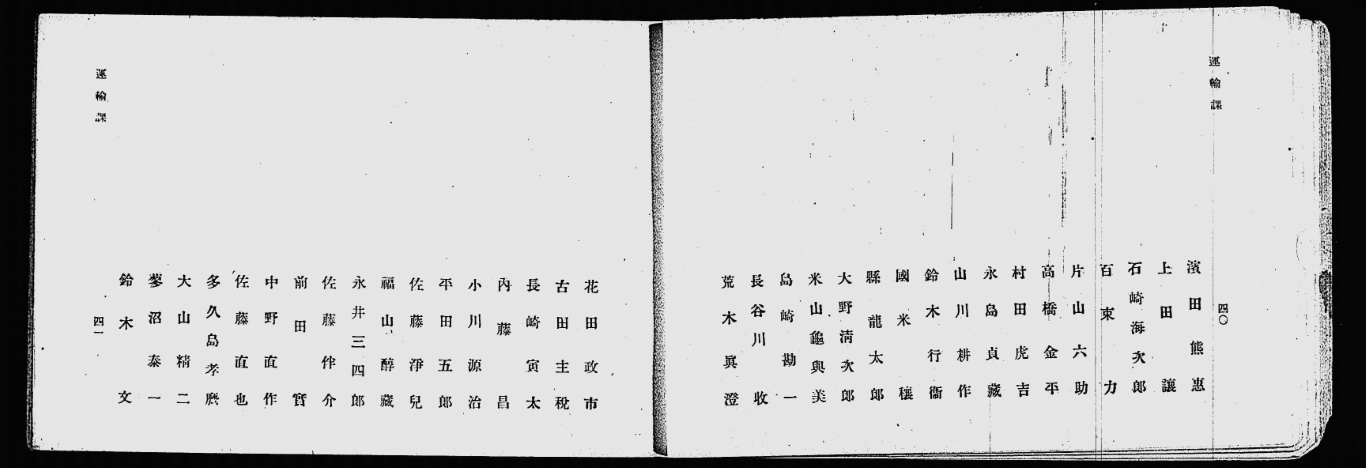 運輸課
四〇
濱田熊惠
上田讓
石崎海次郎
百束力
片山六助
高橋金平
村田虎吉
永島貞藏
山川耕作
鈴木行衞
國米穰
縣龍太郎
大野淸次郎
米山龜與美
島崎勘一
長谷川收
荒木眞澄
花田政市
古田主稅
長崎寅太
內藤昌
小川源治
平田五郎
佐藤淨兒
福山醇藏
永井三四郎
佐藤伴介
前田實
中野直作
佐藤直也
多久島孝麿
大山精二
蓼沼泰一
鈴木文
運輸課
四一